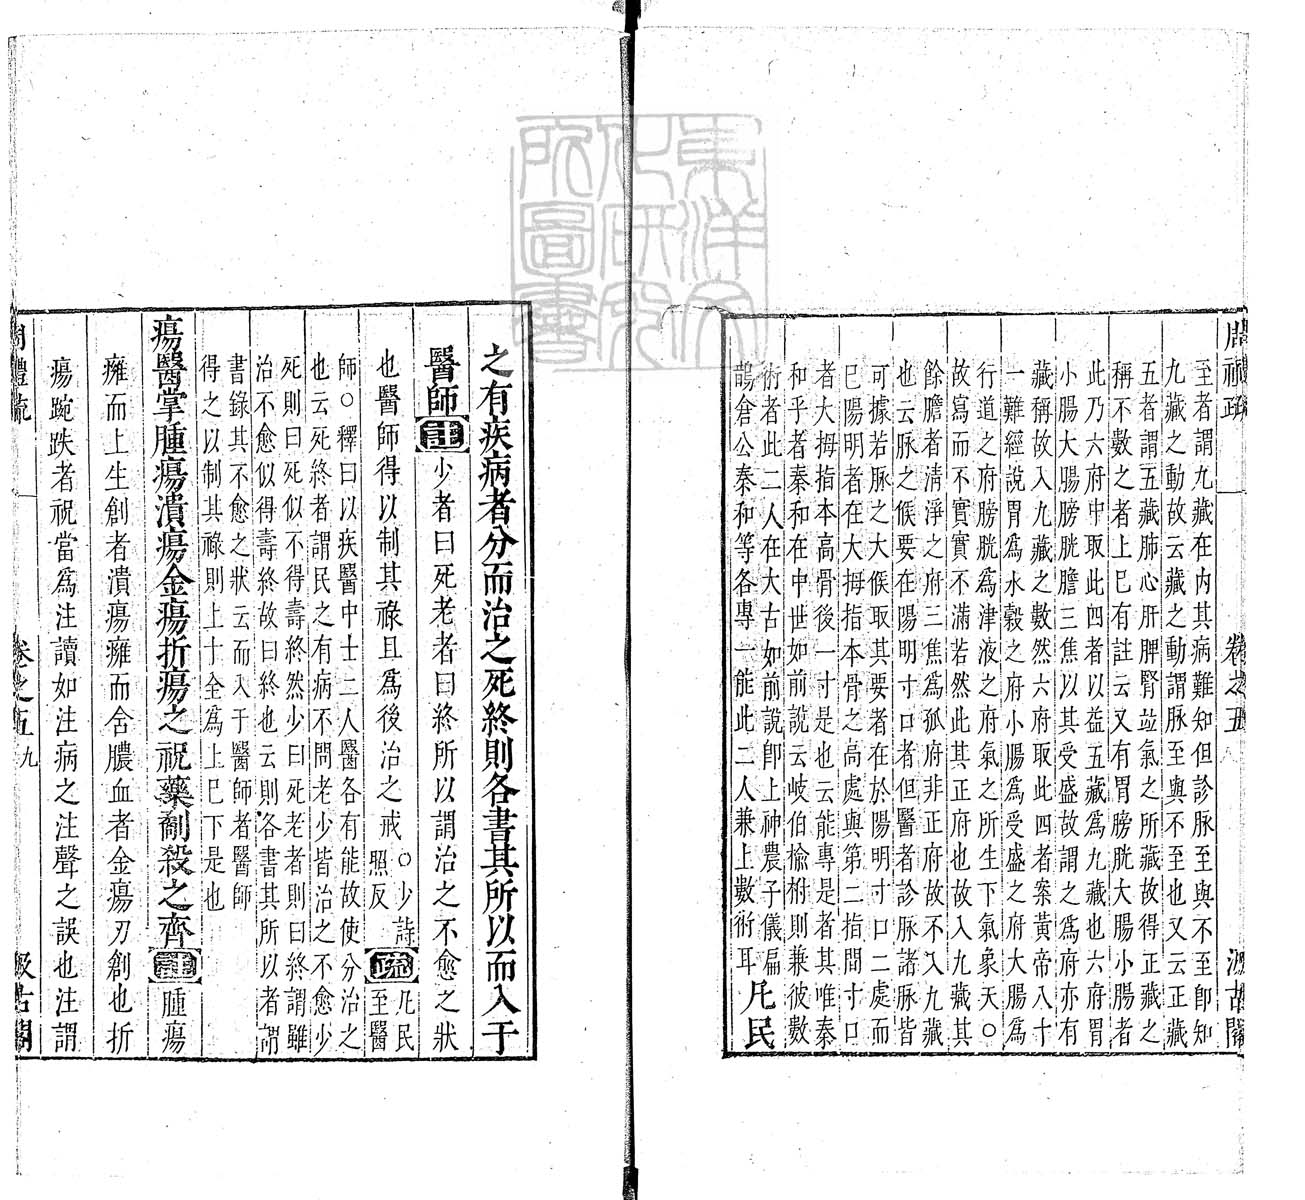 周禮疏
卷之五
汲古閣
至者謂九藏在內其病難知但診脉至與不至卽知
九藏之動故云藏之動謂脉至與不至也又云正藏
五者謂五藏肺心肝脾腎竝氣之所藏故得正藏之
稱不數之者上已有註云又有胃膀胱大腸小腸者
此乃六府中取此四者以益五藏爲九藏也六府胃
小腸大腸膀胱膽三焦以其受盛故謂之爲府亦有
藏稱故入九藏之數然六府取此四者案黃帝八十
一難經說胃爲水穀之府小腸爲受盛之府大腸爲
行道之府膀胱爲津液之府氣之所生下氣象天○
故寫而不實實不滿若然此其正府也故入九藏其
餘膽者淸淨之府三焦爲孤府非正府故不入九藏
也云脉之候要在陽明寸口者但醫者診脉諸脉皆
可據若脉之大候取其要者在於陽明寸口二處而
巳陽明者在大拇指本骨之高處與第二指間寸口
者大拇指本高骨後一寸是也云能專是者其唯秦
和乎者秦和在中世如前說云岐伯楡柎則兼彼數
術者此二人在大古如前說卽上神農子儀扁
鵲倉公秦和等各專一能此二人兼上數術耳凡民
之有疾病者分而治之死終則各書其所以而入于
醫師註少者曰死老者曰終所以謂治之不愈之狀
也醫師得以制其祿且爲後治之戒○少詩照反疏凡民至醫
師○釋曰以疾醫中士二人醫各有能故使分治之
也云死終者謂民之有病不問老少皆治之不愈少
死則曰死似不得壽終然少曰死老者則曰終謂雖
治不愈似得壽終故曰終也云則各書其所以者謂
書錄其不愈之狀云而入于醫師者醫師
得之以制其祿則上十全爲上巳下是也
瘍醫掌腫瘍潰瘍金瘍折瘍之祝藥劀殺之齊註腫瘍
癰而上生創者潰瘍癰而含膿血者金瘍刃創也折
瘍踠跌者祝當爲注讀如注病之注聲之誤也注謂
周禮疏
卷之五
九
汲古閣
東洋文化研究所圖書